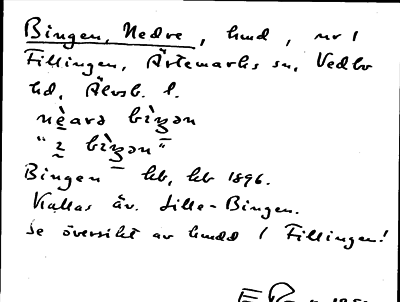 Bingen, Nedre, hmd, nr 1
Fillingen, Ärtemarks sn, Vedbo
hd, Älvsb. l.
nèarə bìʒən
"ì bìʒən"
Bingen hb, kb 1896.
Kallas äv. Lille-Bingen.
Se översikt av hmdd / Fillingen!